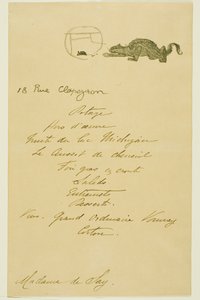 18 Rue Clapeyron
Potage
Hors d'œuvre
Truite du lac Michigan
Le Cuissot de chevreuil
Foie gras en croute
Salade
Entremets
Dessert
Vins. Grand Ordinaire Vouvray
Corton.
Madame de